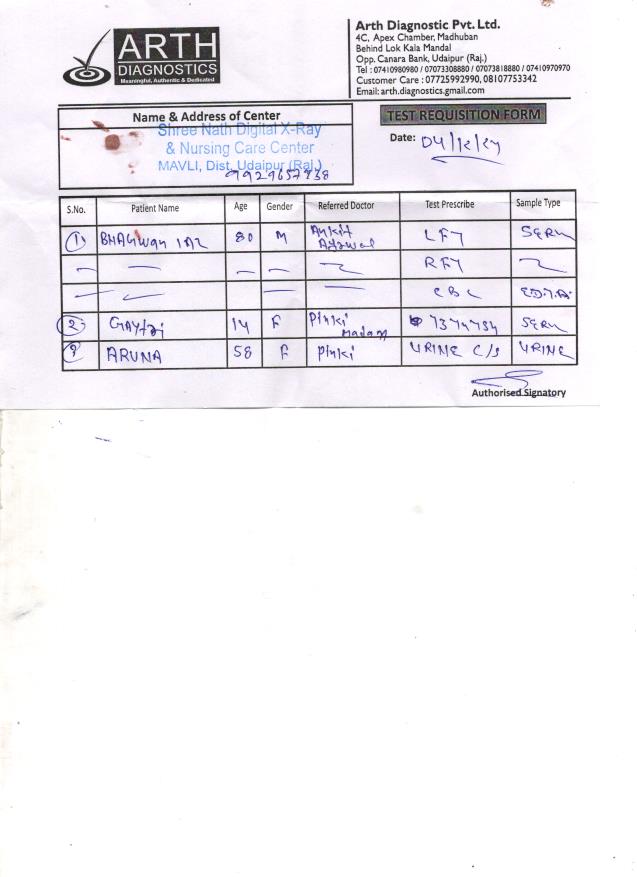 ARTH
DIAGNOSTICS
Meaningful, Authentic & Dedicated
Arth Diagnostic Pvt. Ltd.
4C, Apex Chamber, Madhuban
Behind Lok Kala Mandal
Opp. Canara Bank, Udaipur (Raj.)
Tel : 07410980980 / 07073308880 / 07073818880 / 07410970970
Customer Care : 07725992990, 08107753342
Email: arth.diagnostics.gmail.com
Name & Address of Center
Shree Nath Digital X-Ray
& Nursing Care Center
MAVLI, Dist. Udaipur (Raj.)
9929657838
TEST REQUISITION FORM
Date: 04/12/24
S.No. Patient Name Age Gender Referred Doctor Test Prescribe Sample Type
1 BHAGWAN LAL 80 M Ankit Agrawal LFT SERUM
RFT
CBC EDTA
2 GAYTRI 14 F Pinki Madam T3T4TSH SERUM
3 ARUNA 58 F Pinki URINE C/S URINE
Authorised Signatory